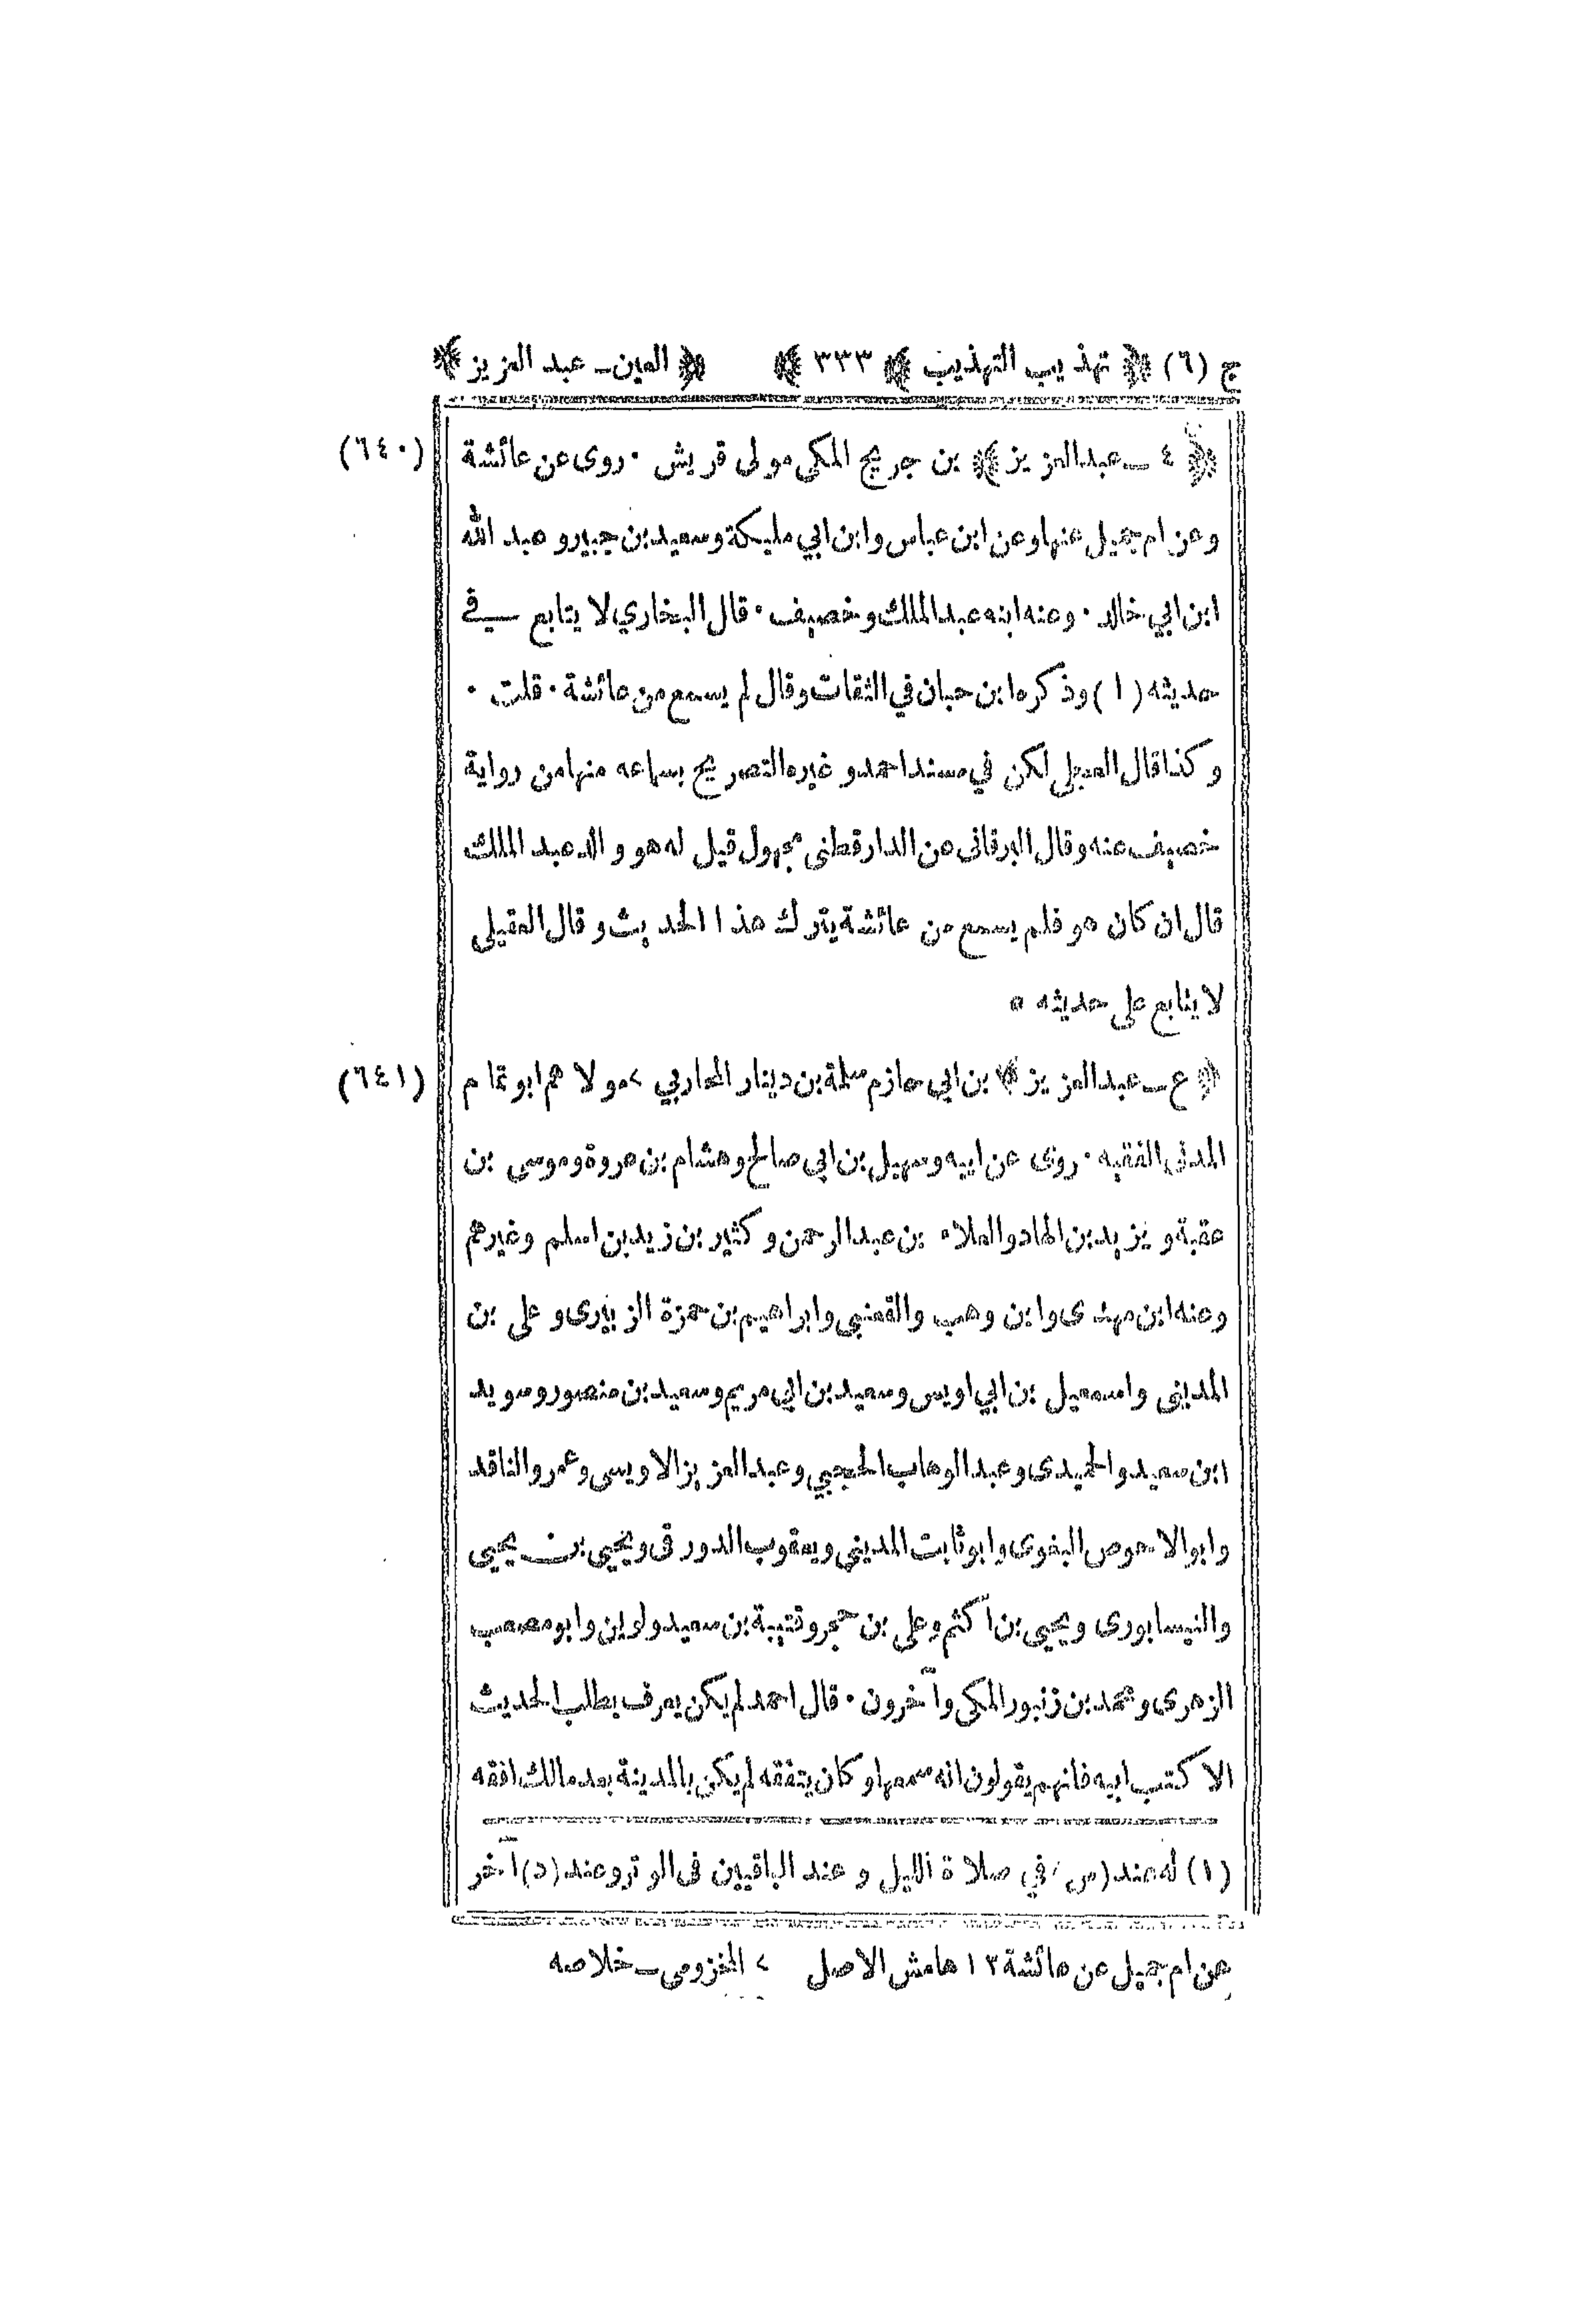 ج (٦) ﴿ تهذيب التهذيب ﴾ ﴿ ٣٣٣ ﴾ ﴿ العين ـ عبد العزيز ﴾
﴿ ٤ ـ عبدالعزيز ﴾ بن جريج المكي مولى قريش ٠ روى عن عائشة (٦٤٠)
وعن ام جميل عنها وعن ابن عباس وابن ابي مليكة وسعيد بن جبير وعبد الله
ابن ابي خالد ٠ وعنه ابنه عبدالملك وخصيف ٠ قال البخاري لا يتابع في
حديثه (١) وذكره ابن حبان في الثقات وقال لم يسمع من عائشة ٠ قلت ٠
وكذا قال العجلي لكن في مسند احمد وغيره التصريح بسماعه منها من رواية
خصيف عنه وقال البرقانى عن الدارقطنى مجهول قيل له هو والد عبد الملك
قال ان كان هو فلم يسمع من عائشة يترك هذا الحديث وقال العقيلى
لا يتابع على حديثه ٥
﴿ ع ـ عبدالعزيز ﴾ بن ابي حازم سلمة بن دينار المحاربي > مولاهم ابو تمام (٦٤١)
المدنى الفقيه ٠ روى عن ابيه وسهيل بن ابي صالح وهشام بن عروة وموسى بن
عقبة ويزيد بن الهاد والعلاء بن عبدالرحمن وكثير بن زيد بن اسلم وغيرهم
وعنه ابن مهدى وابن وهب والقعنبي وابراهيم بن حمزة الزبيرى وعلي بن
المدينى واسمعيل بن ابي اويس وسعيد بن ابي مريم وسعيد بن منصور وسويد
ابن سعيد والحميدى وعبد الوهاب الحجبي وعبدالعزيز الاويسى وعمرو الناقد
وابو الاحوص البغوى وابو ثابت المديني ويعقوب الدورقى ويحيى بن يحيى
والنيسابورى ويحيى بن آكثم وعلي بن حجر وقتيبة بن سعيد ولوين وابو مصعب
الزهرى ومحمد بن زنبور المكي وآخرون ٠ قال احمد لم يكن يعرف بطلب الحديث
الا كتب ابيه فانهم يقولون انه سمعها وكان يتفقه لم يكن بالمدينة بعد مالك افقه
(١) له عند (س) في صلاة الليل وعند الباقيين فى الوتر وعند (د) آخر
عن ام جميل عن عائشة ١٢ هامش الاصل > المخزومى ـ خلاصه